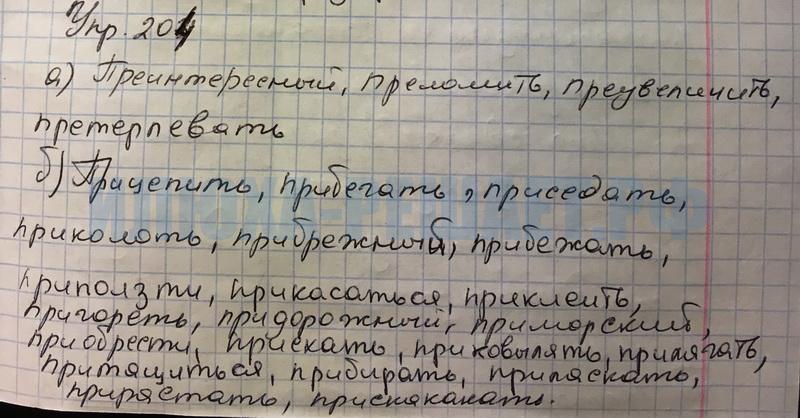 Упр. 204
а) Преинтересный, преломить, преувеличить,
претерпевать
б) Прицепить, прибегать, приседать,
приколоть, прибрежный, прибежать,
приползти, прикасаться, приклеить,
пригореть, придорожный, приморский,
приобрести, приехать, приковылять, прилягать,
притащиться, прибирать, приласкать,
прирястать, прискакакать.